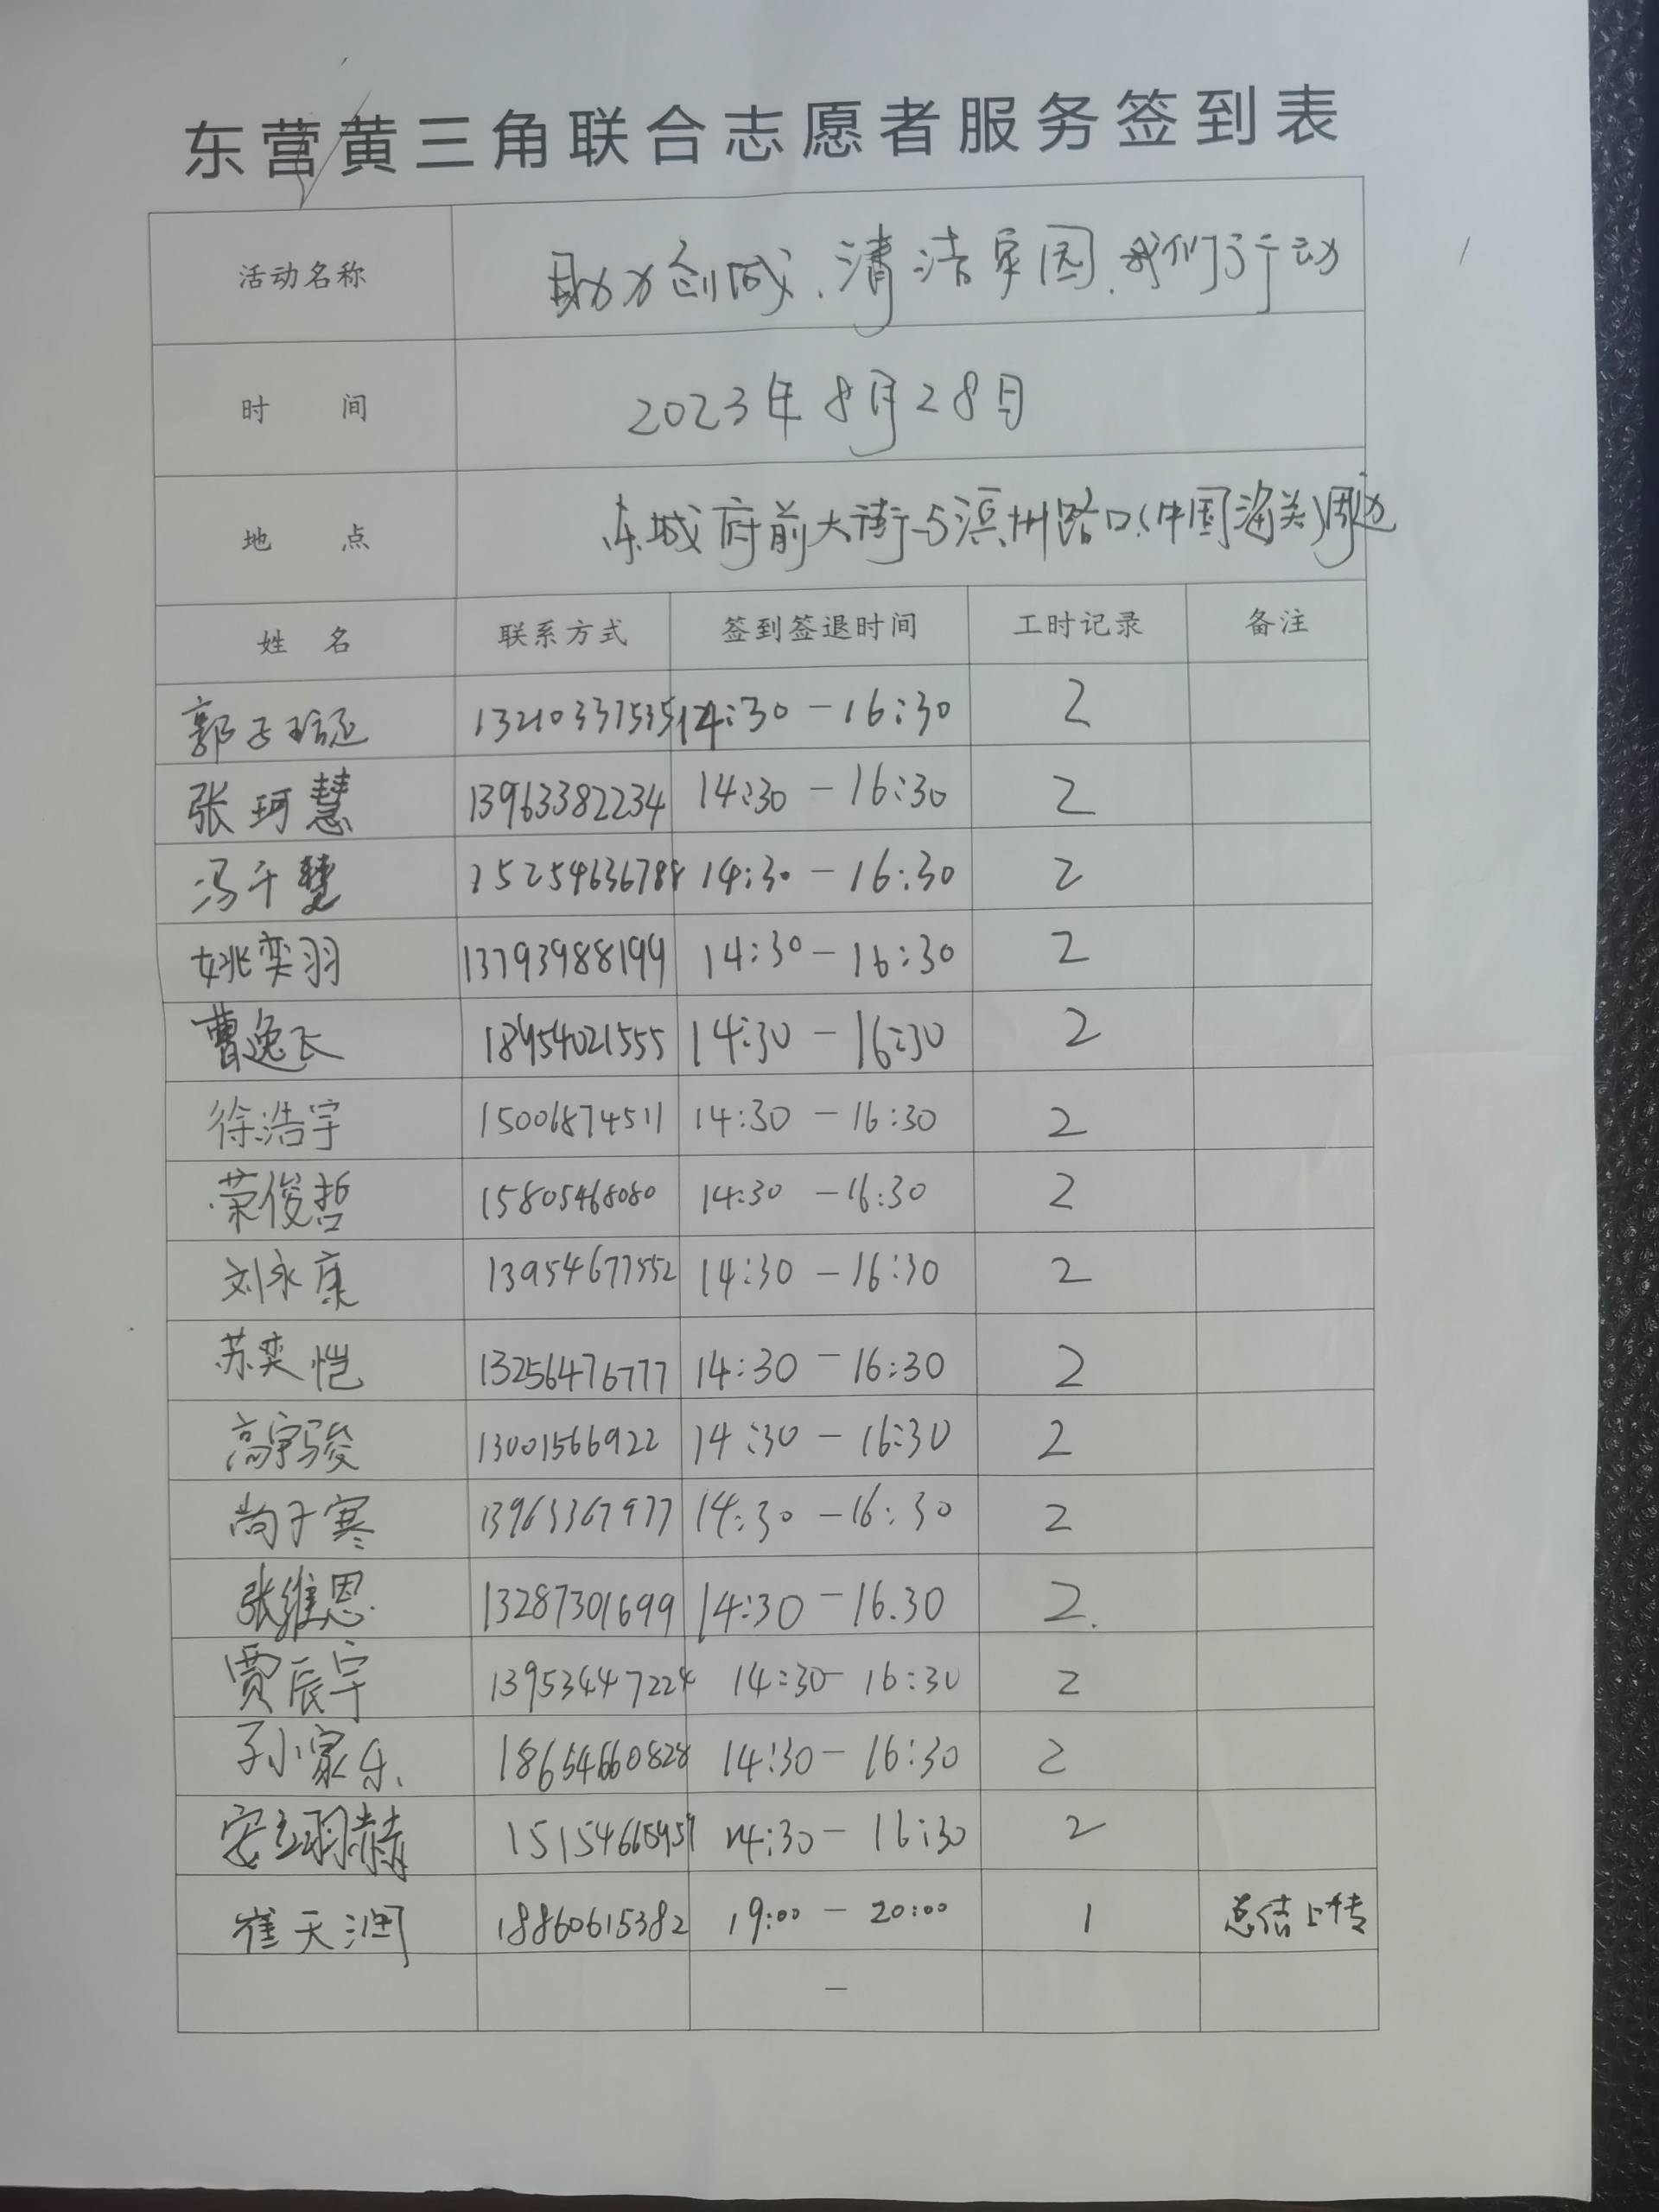 东营黄三角联合志愿者服务签到表
活动名称 助力创城、清洁家园、我们在行动
时 间 2023年8月28日
地 点 东城府前大街与滨州路口(中国海关)周边
姓 名 联系方式 签到签退时间 工时记录 备注
郭子 14:30-16:30 2
张珂慧 13963382234 14:30-16:30 2
冯千慧 15254636788 14:30-16:30 2
姚奕羽 13793988199 14:30-16:30 2
曹逸飞 18954021555 14:30-16:30 2
徐浩宇 15006874511 14:30-16:30 2
荣俊哲 15805468080 14:30-16:30 2
刘永康 13954677552 14:30-16:30 2
苏奕恺 13256476777 14:30-16:30 2
高宇骏 13001566922 14:30-16:30 2
尚子寒 13963367977 14:30-16:30 2
张维恩 13287301699 14:30-16.30 2.
贾辰宇 13953447224 14:30-16:30 2
孙家乐 18654660828 14:30-16:30 2
安立翔赫 14:30-16:30 2
崔天润 18860615382 19:00-20:00 1 总结上传
—